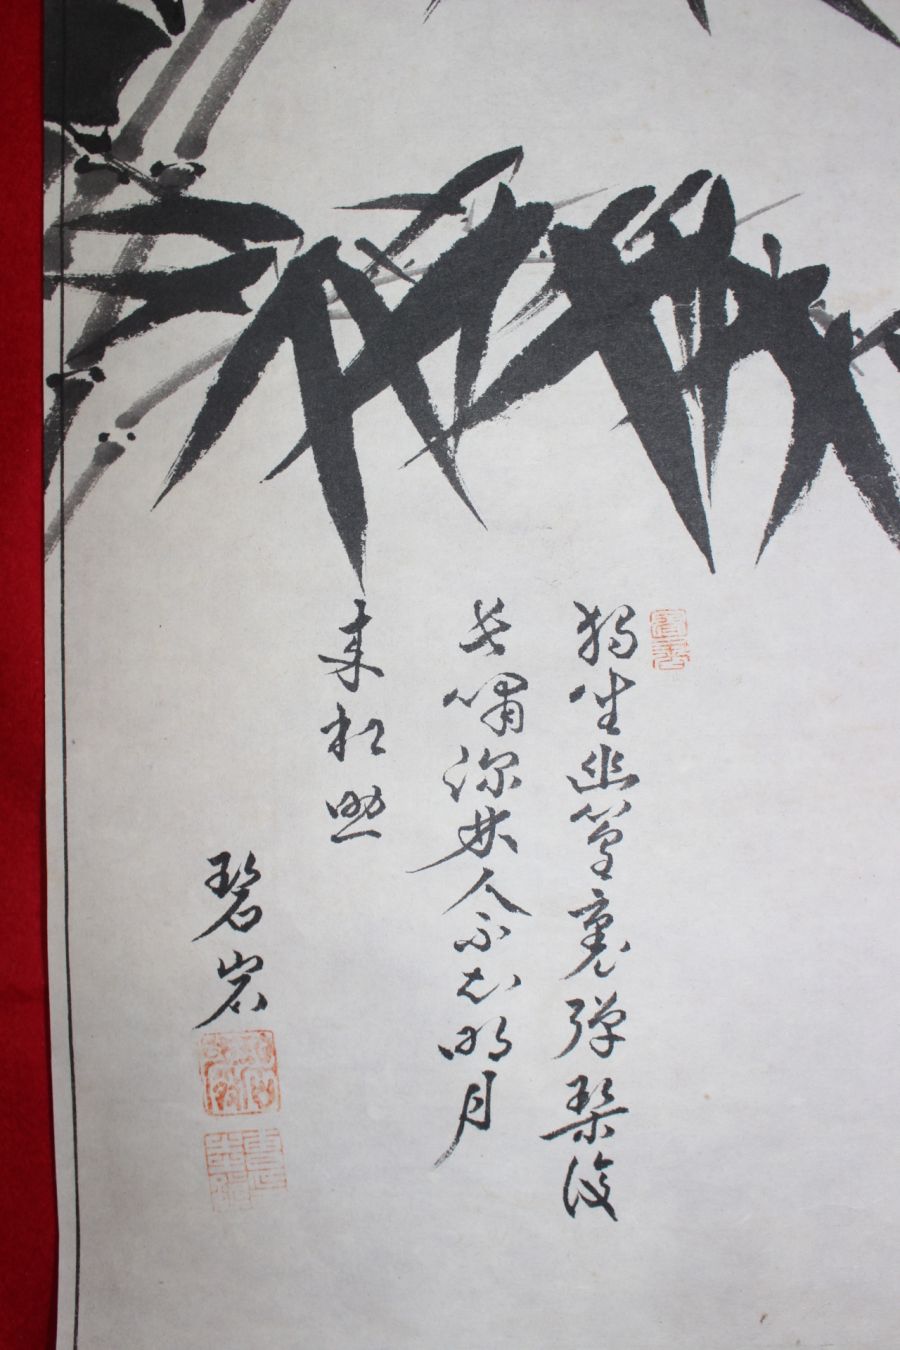 獨坐幽篁裏彈琴復
長嘯深林人不知明月
来相照
碧岩